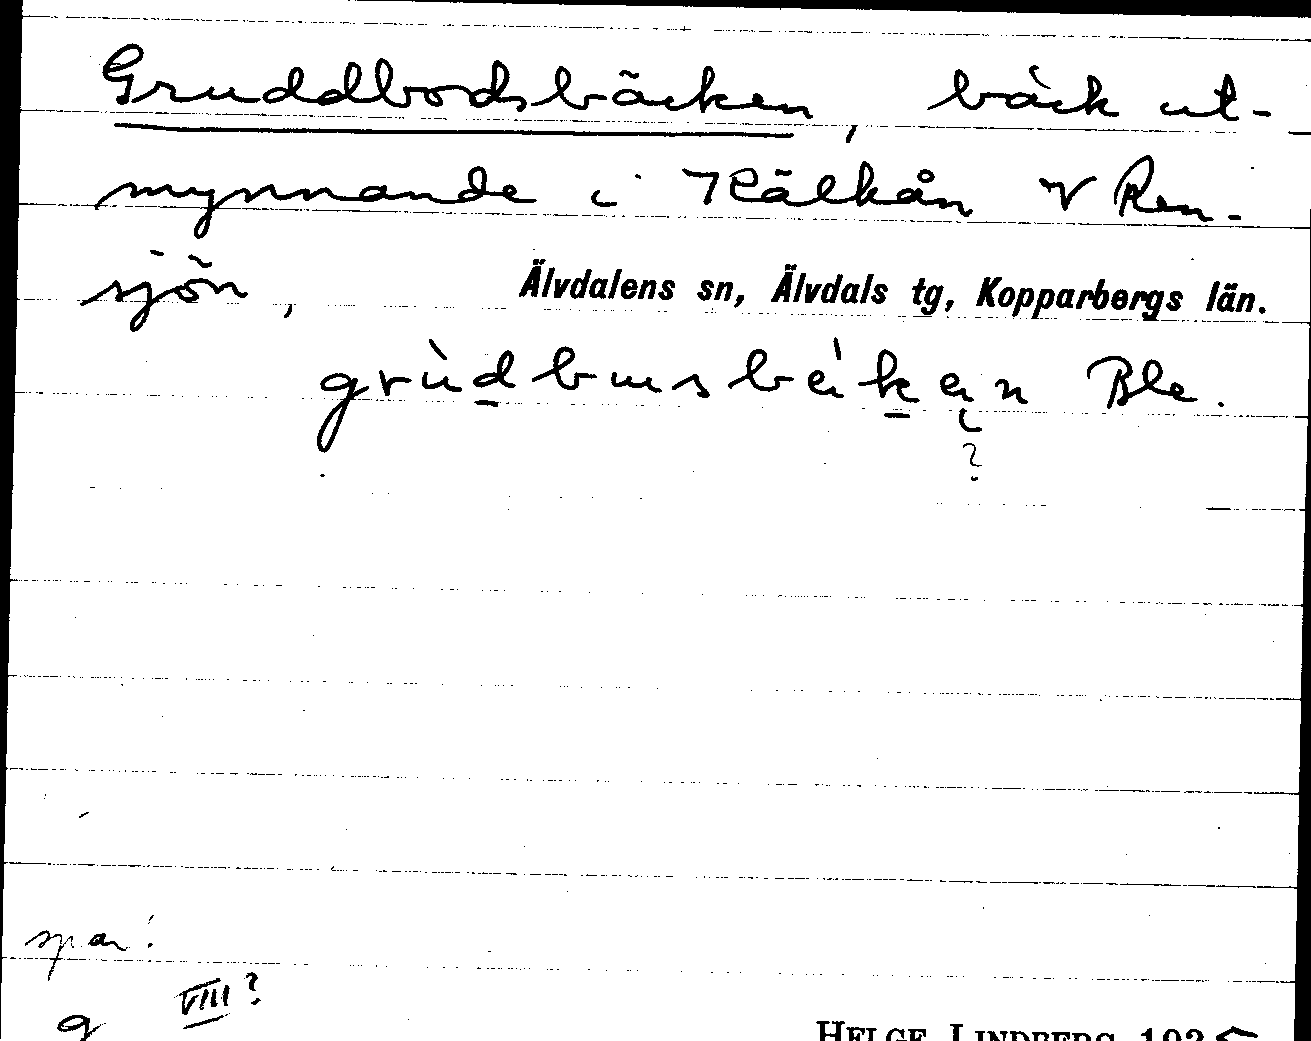 Gruddbodsbäcken, bäck ut-
mynnande i Kälkån V Ren-
sjön, Älvdalens sn, Älvdals tg, Kopparbergs län.
Ble.
?
spar!
VIII?
g
HELGE LINDBERG 1935